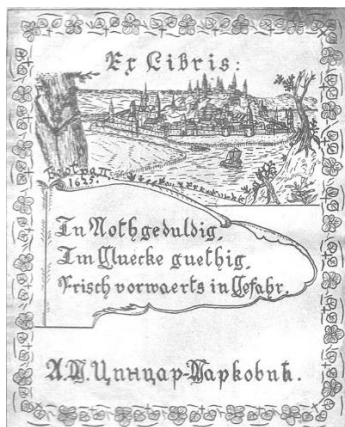 Ex Libris:
Београд
1625.
In Noth geduldig,
Im Gluecke guethig,
Frisch vorwaerts in Gefahr.
А.М. Цинцар-Марковић.